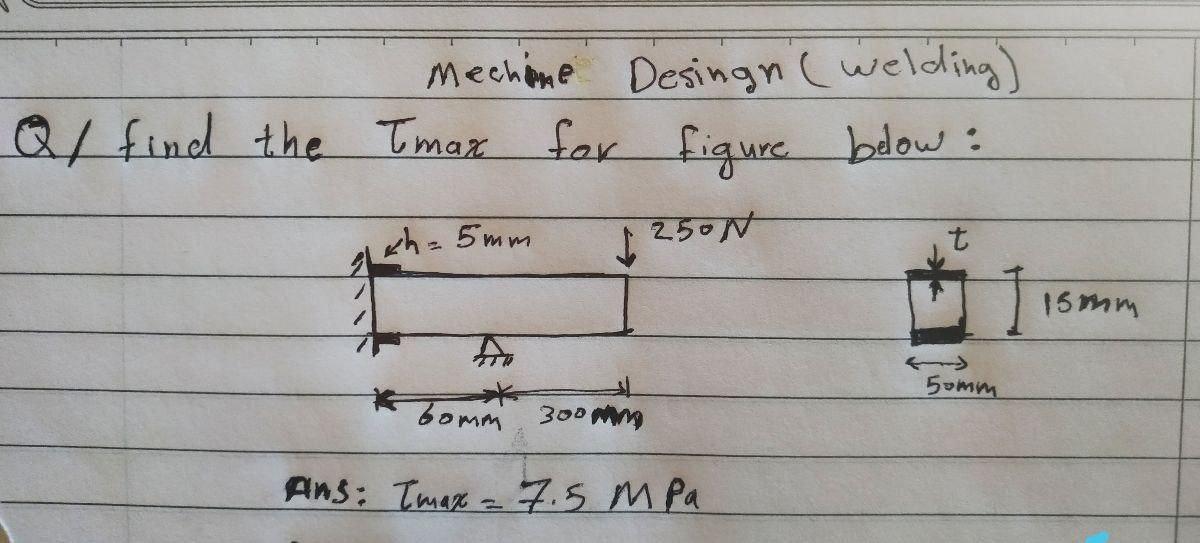 Mechine Desingn (welding)
Q/ find the τmax for figure below:
h = 5mm
250N
t
15mm
50mm
60mm
300mm
Ans: τmax = 7.5 MPa